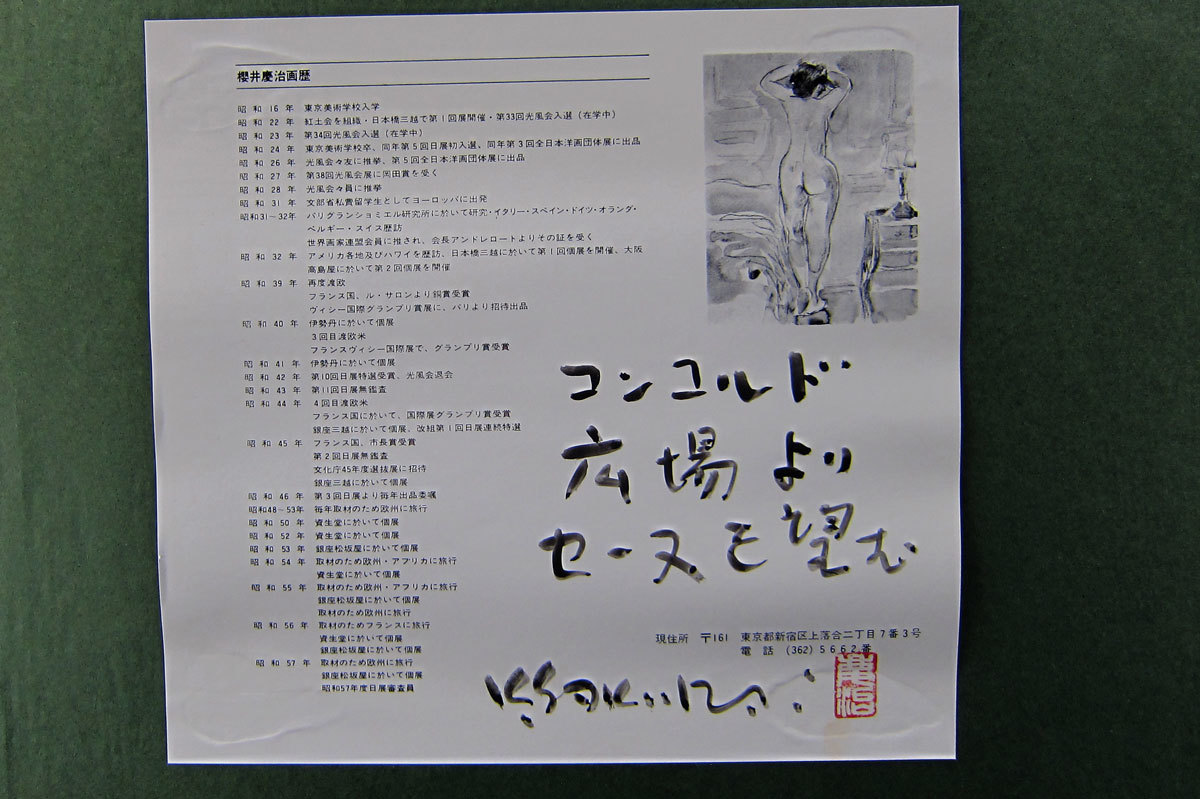 櫻井慶治画歴
昭和16年 東京美術学校入学
昭和22年 紅土会を組織・日本橋三越で第1回展開催・第33回光風会入選（在学中）
昭和23年 第34回光風会入選（在学中）
昭和24年 東京美術学校卒、同年第5回日展初入選、同年第3回全日本洋画団体展に出品
昭和26年 光風会々友に推挙、第5回全日本洋画団体展に出品
昭和27年 第38回光風会展に岡田賞を受く
昭和28年 光風会々員に推挙
昭和31年 文部省私費留学生としてヨーロッパに出発
昭和31～32年 パリグランショミエル研究所に於いて研究・イタリー・スペイン・ドイツ・オランダ・
ベルギー・スイス歴訪
世界画家連盟会員に推され、会長アンドレロートよりその証を受く
昭和32年 アメリカ各地及びハワイを歴訪、日本橋三越に於いて第1回個展を開催、大阪
高島屋に於いて第2回個展を開催
昭和39年 再度渡欧
フランス国、ル・サロンより銅賞受賞
ヴィシー国際グランプリ賞展に、パリより招待出品
昭和40年 伊勢丹に於いて個展
3回目渡欧米
フランスヴィシー国際展で、グランプリ賞受賞
昭和41年 伊勢丹に於いて個展
昭和42年 第10回日展特選受賞、光風会退会
昭和43年 第11回日展無鑑査
昭和44年 4回目渡欧米
フランス国に於いて、国際展グランプリ賞受賞
銀座三越に於いて個展、改組第1回日展連続特選
昭和45年 フランス国、市長賞受賞
第2回日展無鑑査
文化庁45年度選抜展に招待
銀座三越に於いて個展
昭和46年 第3回日展より毎年出品委嘱
昭和48～53年 毎年取材のため欧州に旅行
昭和50年 資生堂に於いて個展
昭和52年 資生堂に於いて個展
昭和53年 銀座松坂屋に於いて個展
昭和54年 取材のため欧州・アフリカに旅行
資生堂に於いて個展
昭和55年 取材のため欧州・アフリカに旅行
銀座松坂屋に於いて個展
取材のため欧州に旅行
昭和56年 取材のためフランスに旅行
資生堂に於いて個展
銀座松坂屋に於いて個展
昭和57年 取材のため欧州に旅行
銀座松坂屋に於いて個展
昭和57年度日展審査員
コンコルド
広場より
セーヌを望む
現住所 〒161 東京都新宿区上落合二丁目7番3号
電話 (362) 5662番
慶治